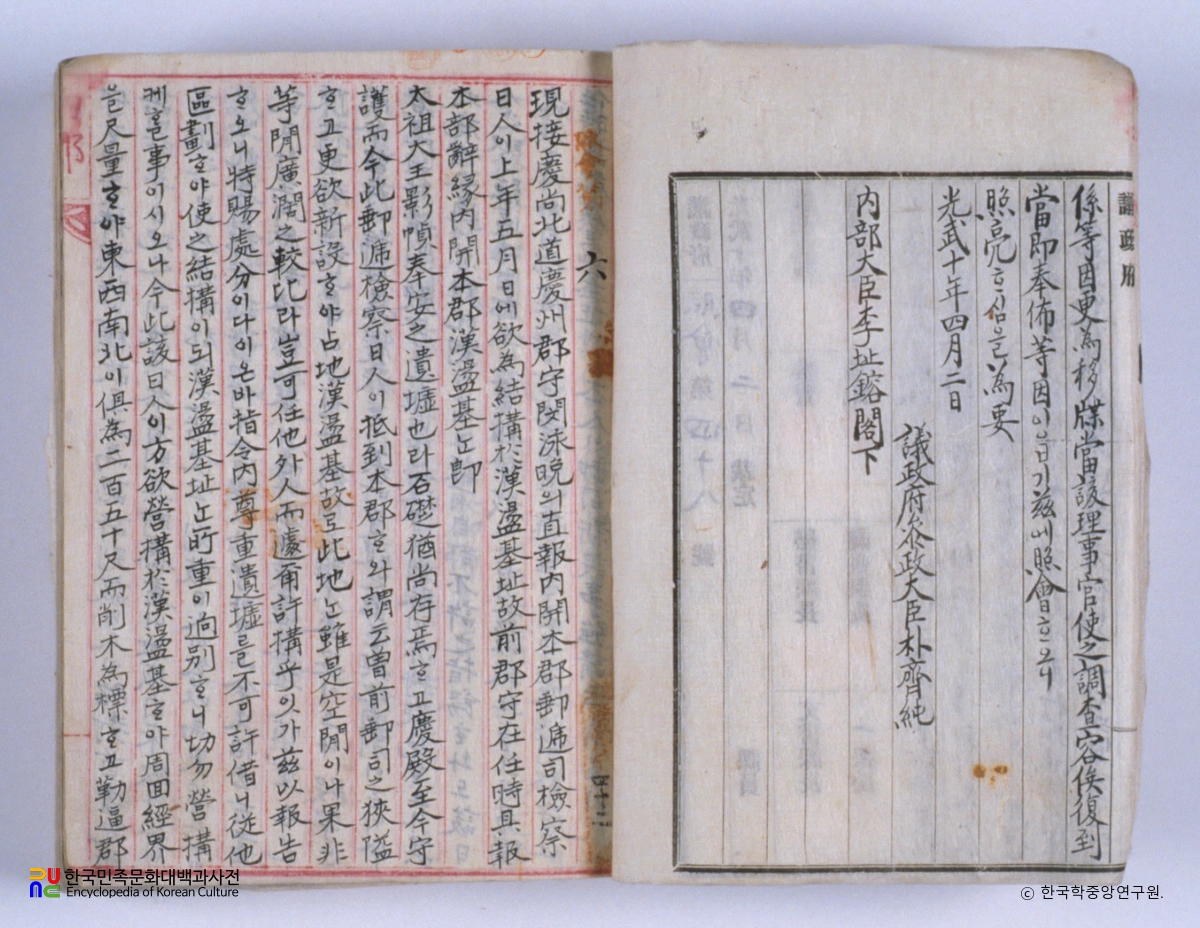 議政府
係等因更爲移牒當該理事官使之調査容俟復到
當即奉佈等因이읍기玆에照會하오니
照亮하심을爲要
光武十年四月二日
議政府參政大臣朴齊純
內部大臣李址鎔閣下
六
現接慶尙北道慶州郡守閔泳晩의直報內開本郡郵遞司檢察
日人이上年五月日에欲爲結構於漢溋基址故前郡守在任時具報
本部辭緣內開本郡漢溋基는卽
太祖大王影幀奉安之遺墟也라石礎猶尙存焉하고慶殿至今守
護而今此郵遞檢察日人이抵到本郡하와謂云曾前郵司之狹隘
하고更欲新設하야占地漢溋基故로此地는雖是空閒이나果非
等閒廣濶之較比라豈可任他外人而遽爾許構乎잇가玆以報告
하오니特賜處分이다이온바指令內尊重遺墟를不可許借니從他
區劃하야使之結構이되漢溋基址는所重이逈別하니切勿營構
케할事이시오나今此該日人이方欲營構於漢溋基하야周圍經界
을尺量하야東西南北이俱爲二百五十尺而削木爲標하고勒逼郡
한국민족문화대백과사전
Encyclopedia of Korean Culture
ⓒ 한국학중앙연구원.